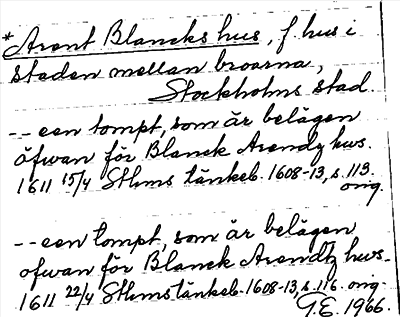 *Arent Blancks hus, f. hus i
staden mellan broarna,
Stockholms stad.
--een tompt, som är belägen
åfwan för Blanck Arendz hws.
1611 15/4 Sthms tänkeb. 1608-13, s. 113.
orig.
--een tompt, som är belägen
ofwan för Blanck Arendtz hws.
1611 22/4 Sthms tänkeb. 1608-13, s. 116. orig.
G.E. 1966.